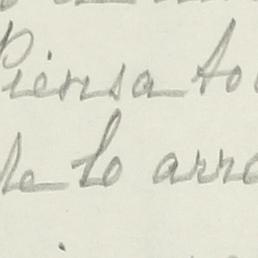 Piensa to
te lo arre